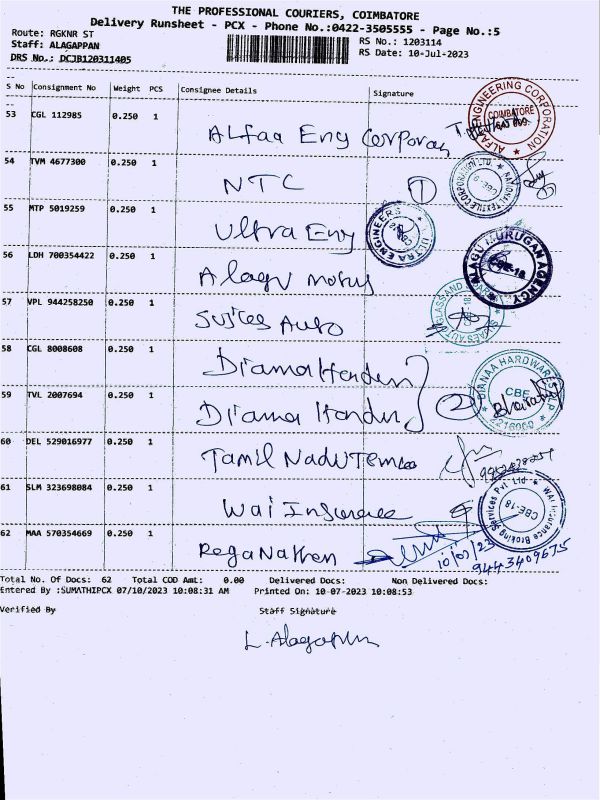 THE PROFESSIONAL COURIERS, COIMBATORE
Delivery Runsheet - PCX - Phone No.:0422-3505555 - Page No.:5
Route: RGKNR ST
RS No.: 1203114
Staff: ALAGAPPAN
RS Date: 10-Jul-2023
DRS No.: DCJB120311405
S No Consignment No Weight PCS Consignee Details Signature
53 CGL 112985 0.250 1
Alfaa Eng Corporan
ALFAA ENGINEERING CORPORATION COIMBATORE
54 TVM 4677300 0.250 1
NTC 1
NATIONAL TEXTILE CORPORATION LTD. CBE-9
55 MTP 5019259 0.250 1
Ultra Eng
ULTRA ENGINEERS
56 LDH 700354422 0.250 1
Alagu motus
ALAGU MURUGAN AGENCY CBE-18
57 VPL 944258250 0.250 1
Sujies Auto
58 CGL 8008608 0.250 1
Diama Harden
59 TVL 2007694 0.250 1
Diama Harden 2
DIANAA HARDWARES LLP CBE
Bharath
60 DEL 529016977 0.250 1
Tamil Nadu Temloo
61 SLM 323698084 0.250 1
Wai Insurance
Wai Insurance Broking Services Pvt Ltd CBE-18
62 MAA 570354669 0.250 1
Reganathen
10/07/23
9443409675
Total No. Of Docs: 62 Total COD Amt: 0.00 Delivered Docs: Non Delivered Docs:
Entered By :SUMATHIPCX 07/10/2023 10:08:31 AM Printed On: 10-07-2023 10:08:53
Verified By Staff Signature
L. Alagappan